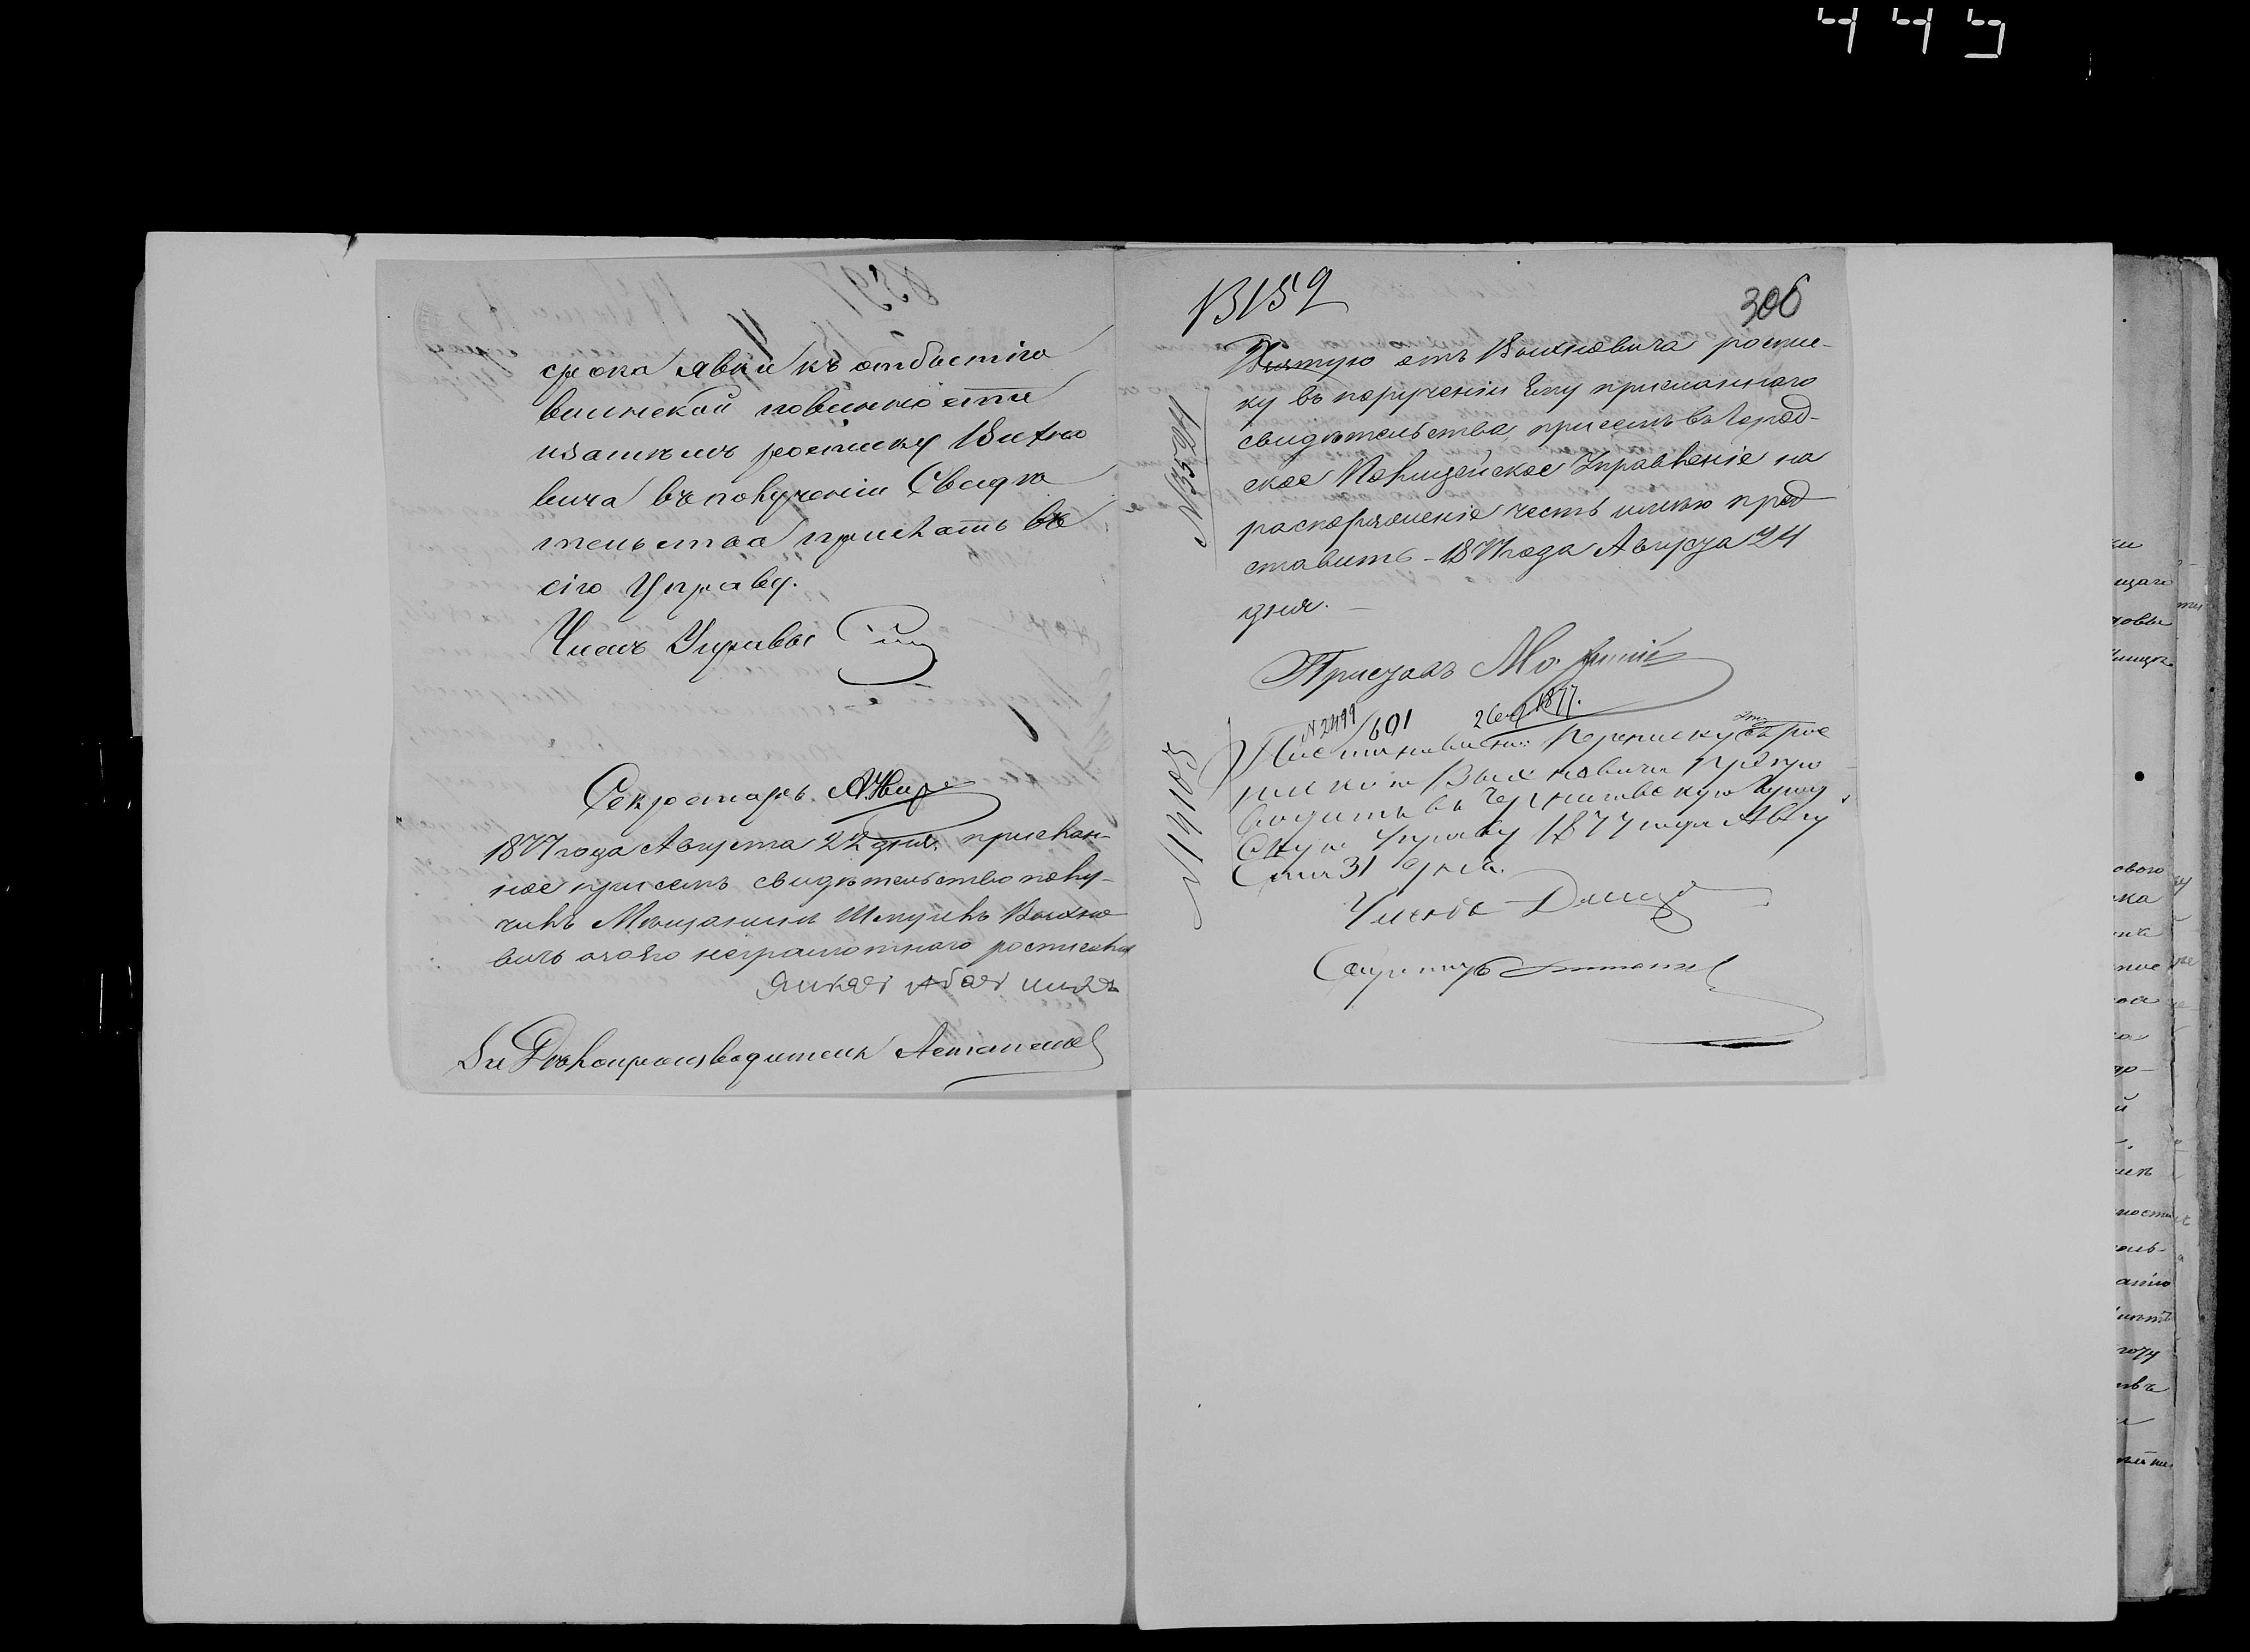 449
срока явки къ отбытію
воинской повинности
взамѣнъ росписку Вихно
вича въ полученіи Свидѣ
тельства прислать въ
сію Управу.
Членъ Управы
Секретарь
1877 года Августа 22 дня. прислан-
ное присемъ свидѣтельство полу-
чилъ Мѣщанинъ Шмуилъ Выхно
вичъ а за его неграмотнаго росписался
За Дѣлопроизводителя
В 152
306
№ 3594
Взятую отъ Выхновича роспис-
ку въ полученіи Ему присланнаго
свидѣтельства, присемъ въ Город-
ское Полицейское Управленіе на
распоряженіе честь имѣю пред
ставить - 1877 года Августа 24
дня.
Приставъ
№ 2499 / 601 2 Сен 1877.
№ 19105
Постановили: Переписку эту съ рос
пискою Выхновича препро
водить въ Черниговскую Город
скую Управу 1877 года Авгу
ста 31 дня.
Членъ
Секретарь